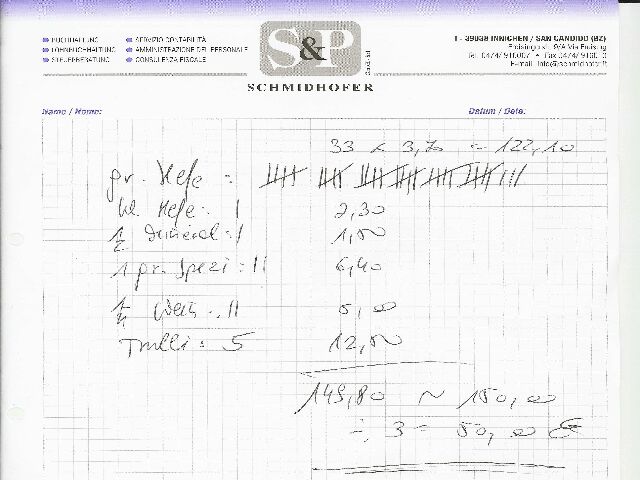 BUCHHALTUNG
LOHNBUCHHALTUNG
STEUERBERATUNG
SERVIZIO CONTABILITÀ
AMMINISTRAZIONE DEL PERSONALE
CONSULENZA FISCALE
S&P
SCHMIDHOFER
I - 39038 INNICHEN / SAN CANDIDO (BZ)
Freisingerstr. 9/A Via Freising
Tel. 0474/ Fax 0474/
E-mail: info@schmidhofer.it
Name / Nome:
Datum / Data:
33 x 3,70 = 122,10
gr. Hefe =
kl. Hefe = | 2,30
1/2 Mineral = | 1,50
1 gr. Spezi = || 6,40
1/4 Wein = || 5,00
Trulli = 5 12,50
149,80 ~ 150,00
: 3 = 50,00 €